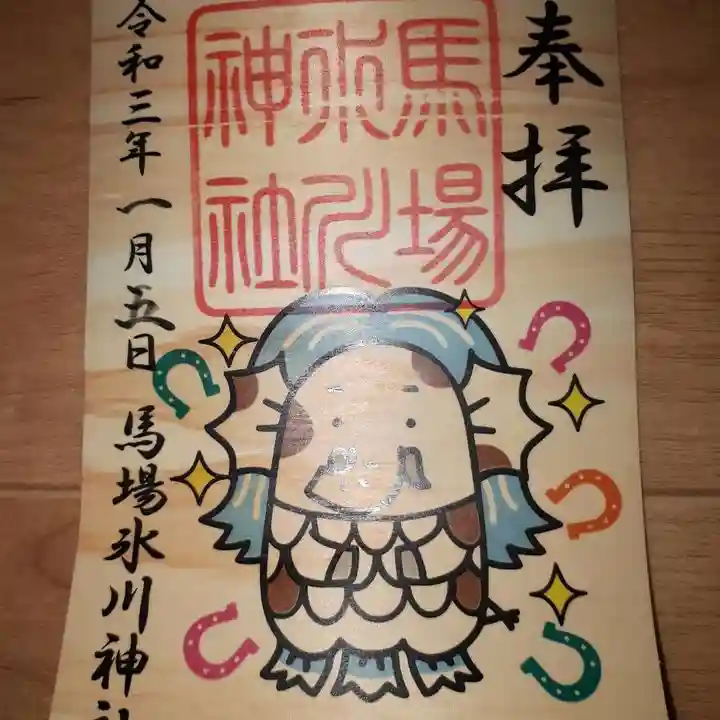 奉拝
馬場
氷川
神社
令和三年 一月五日 馬場氷川神社